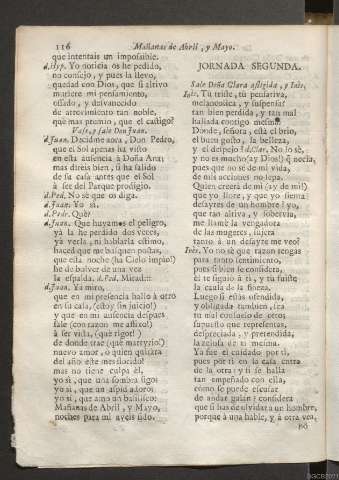 116 Mañanas de Abril, y Mayo.
que intentais un imposible.
d.Hyp. Yo noticia os he pedido,
no consejo, y pues la llevo,
quedad con Dios, que si altivo
muriere mi pensamiento,
ossado, y desvanecido
de atrevimiento tan noble,
què mas premio, que el castigo?
Vase, y sale Don Juan.
d.Juan. Decidme aora, Don Pedro,
que el Sol apenas ha visto
en esta ausencia à Doña Ana;
mas direis bien, si ha salido
de su casa antes que el Sol
à ser del Parque prodigio.
d.Ped. No sè que os diga.
d.Juan. Yo sì.
d.Pedr. Què?
d.Juan. Que huyamos el peligro,
yà la he perdido dos veces,
yà verla, ni hablarla estimo,
haced que me busquen postas,
que esta noche (ha Cielo impio!)
he de bolver de una vez
la espalda. d.Ped. Mirad:::
d.Juan. Yà miro,
que en mi presencia hallo à otro
en su casa, (estoy sin juicio!)
y que en mi ausencia despues
sale (con razon me aflixo!)
à ser vista, (què rigor!)
de donde trae (què martyrio!)
nuevo amor, ò quien quitara
del año este mes florido!
mas no tiene culpa èl,
yo sì, que una sombra sigo;
yo sì, que un aspid adoro;
yo sì, que amo un basilisco:
Mañanas de Abril, y Mayo,
noches para mi aveis sido.
JORNADA SEGUNDA.
Sale Doña Clara afligida, y Inès.
Inès. Tù triste, tù pensativa,
melancolica, y suspensa?
tan bien perdida, y tan mal
hallada contigo mesma?
Donde, señora, està el brio,
el buen gusto, la belleza,
y el despejo? d.Clar. No lo sè,
y no es mucho (ay Dios!) q̃ no sepa,
pues que no sè de mi vida,
de mis acciones no sepa.
Quien creerà de mi (ay de mi!)
que yo llore, y que yo sienta
desayres de un hombre? yo,
que tan altiva, y sobervia,
me llamè la vengadora
de las mugeres, sujeta
tanto à un desayre me veo?
Inès. Yo no sè que razon tengas
para tanto sentimiento,
pues si bien se considera,
èl te siguiò à ti, y tù fuiste
la causa de la fineza.
Luego si estàs ofendida,
y obligada tambien, sea
tu mal consuelo de otros
supuesto que representas,
despreciada, y pretendida,
la zelosa de ti mesma.
Ya fue el cuidado por ti,
pues por ti en la casa entra
de la otra; y si se halla
tan empeñado con ella,
còmo se puede escusar
de andar galan? considera
que si has de olvidar à un hombre,
porque à una hable, y à otra vea,
no